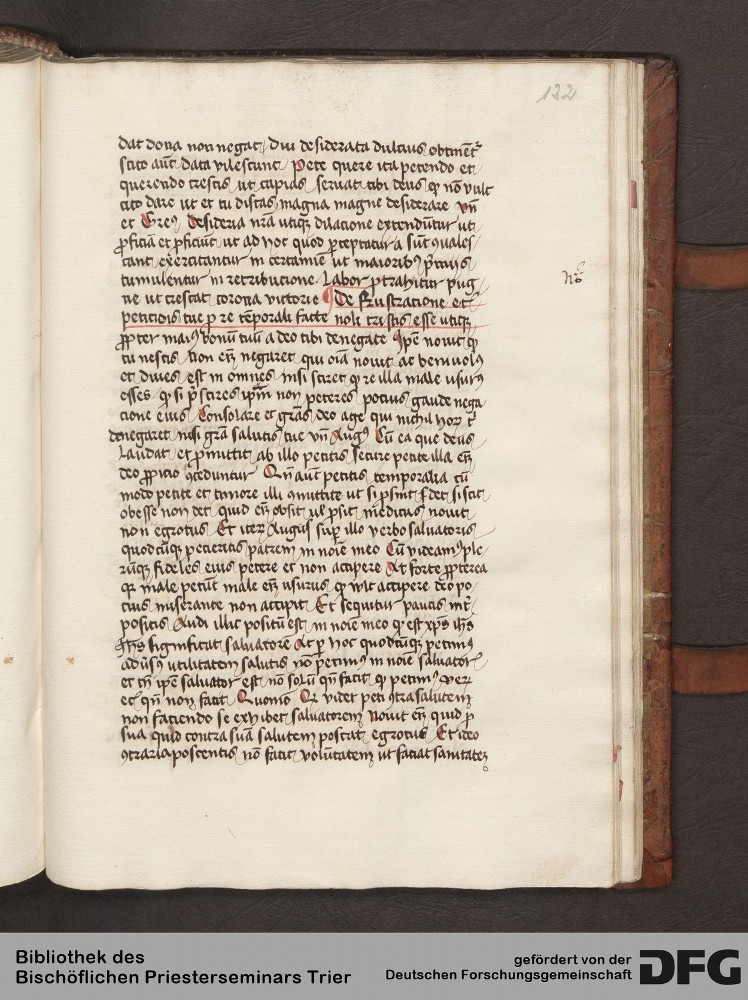 122
dat dona non negat Diu desiderata dulcius obtinet᷑
scito aut̄ data vilescunt Pete quere ita petendo et
querendo crescis ut capias seruat tibi deus qꝫ nō vult
cito dare ut et tu discas magna magne desiderare vn̄
et Greꝰ Desideria nr̄a utiqꝫ dilacione extendūtur ut
ꝓficiāt et ꝓficiūt ut ad hoc quod
cant exercitantur in certamīe ut maioribꝰ
cumulentur in retribucione Labor ꝓtrahitur pug
ne ut crescat corona victorie De frustracione et
peticiōis tue ꝓ re tēporali facte noli tristis esse utiqꝫ
ꝓpter maiꝰ bonū tuū a deo tibi denegate Ipē nouit qꝫ
tu nescis Non em̄ negaret qui oīa nouit ac beniuolꝰ
et diues est in omnes nisi sciret qꝫ re illa male usurꝰ
esses qꝫ si p̄scires ip̄m non peteres pocius gaude nega
cione eius Consolare et gr̄as deo age qui nichil hor᷑ t᷑
denegaret nisi gr̄a salutis tue vn̄ Augꝰ Cū ea que deus
laudat et ꝓmittit ab illo petitis secure petite illa em̄
deo ꝓpicio ꝯceduntur Qn̄ aut̄ petitis temporalia cū
modo petite et timore illi ꝯmittite ut si prosint det si scit
obesse non det quid em̄ obsit ul̓ prosit medicus nouit
non egrotus Et iter᷑ Augusˀ suꝑ illo verbo saluatoris
quodcūqꝫ pecieritis patrem in noīe meo Cū videamꝰ ple
rūqꝫ fideles eius petere et non accipere At forte ꝓpterea
qꝛ male petūt male em̄ usurus qꝫ vult accipere deo po
cius miserante non accipit Et sequitur paucis int᷑
positis Audi illic positū est in noīe meo qꝫ est xp̄s ih̄s
ih̄s significat saluatorē At ꝑ hoc quodcūqꝫ petimꝰ
aduˀsꝰ utilitatem salutis nō petimꝰ in noīe saluatorˀ
et tn̄ ipē saluator est nō solū qn̄ facit qꝫ petimꝰ ver᷑
et qn̄ non facit Quomō Qꝛ videt peti ꝯtra salutem
non faciendo se exhibet saluatorem Nouit em̄ quid ꝓ
sua quid contra suā salutem poscat egrotus Et ideo
ꝯtraria poscentis nō facit volūtatem ut faciat sanitatē
Bibliothek des
Bischöflichen Priesterseminars Trier
gefördert von der
Deutschen Forschungsgemeinschaft
DFG